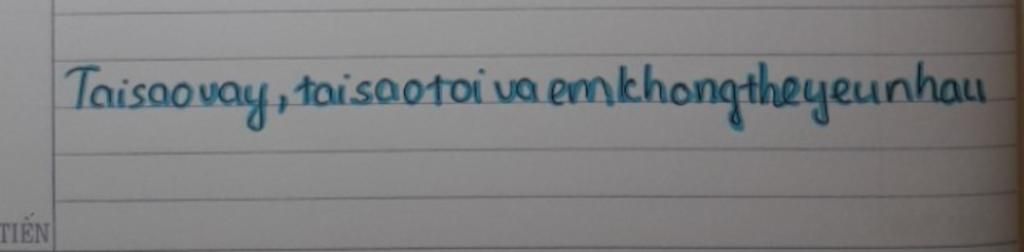 Taisaovay, taisaotoi va emkhongtheyeunhau
TIẾN